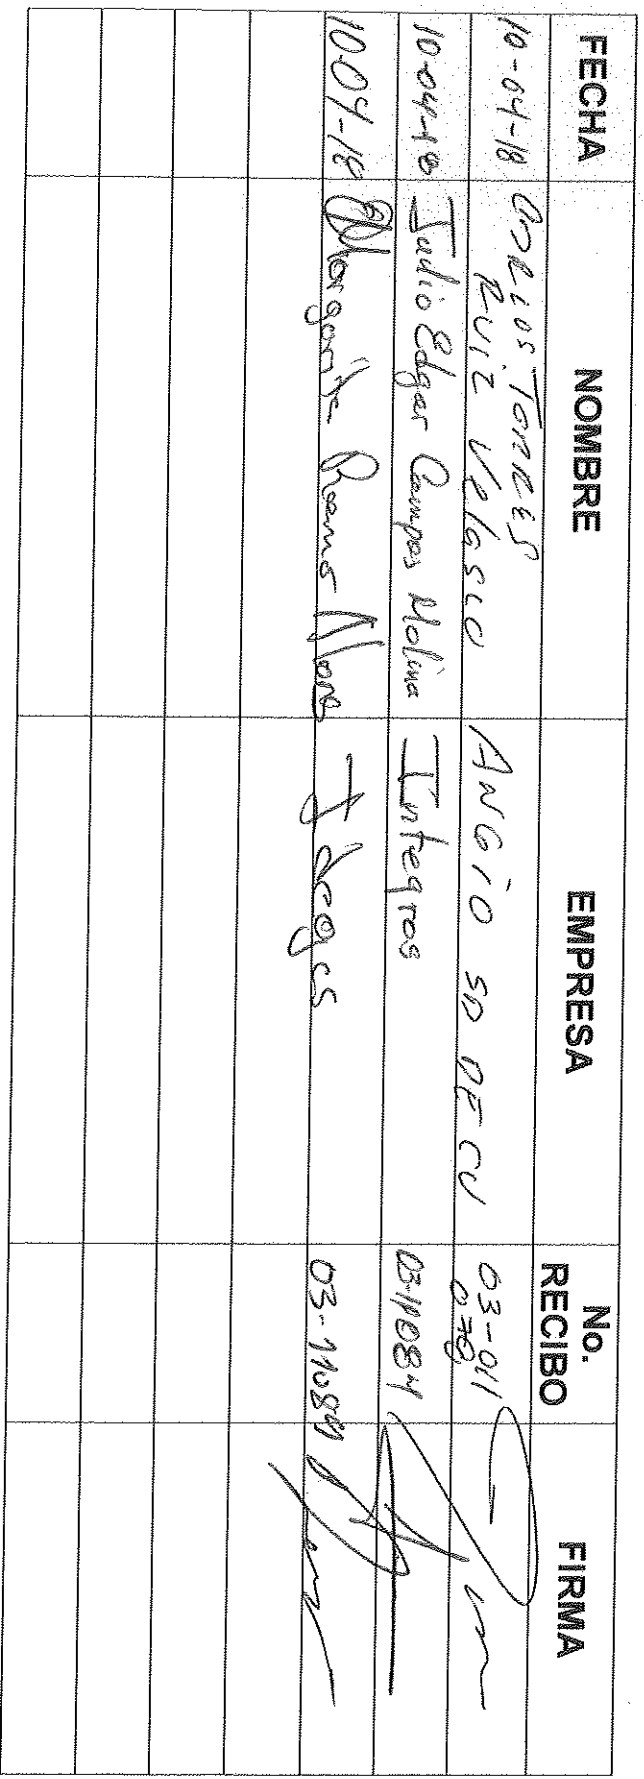 FECHA NOMBRE EMPRESA No. RECIBO FIRMA
10-04-18 Carlos Torres Ruiz Velasco ANGIO SD DE CV 03-011
10-04-18 Julio Edgar Campos Molina Integras 03-11084
10-04-18 Margarita